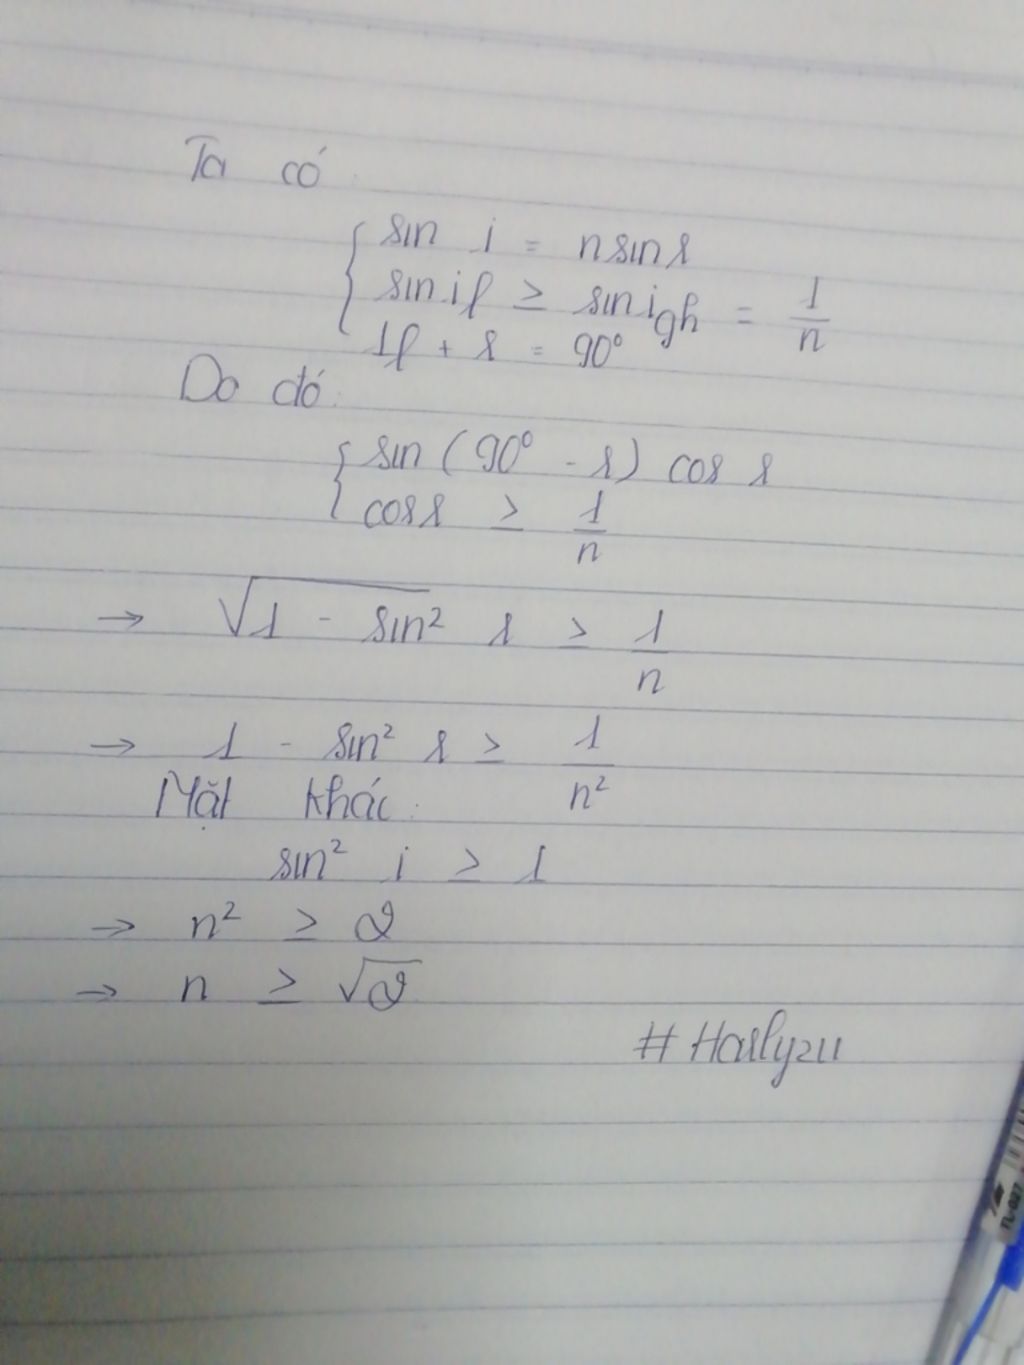 Ta có
sin i = n sin r
sin if ≥ sin igh = 1/n
if + r = 90°
Do đó:
sin (90° - r) cos r
cos r ≥ 1/n
→ √1 - sin² r ≥ 1/n
→ 1 - sin² r ≥ 1/n²
Mặt khác:
sin² i ≥ 1
→ n² ≥ 2
→ n ≥ √2
# Harlyzu
TL-027